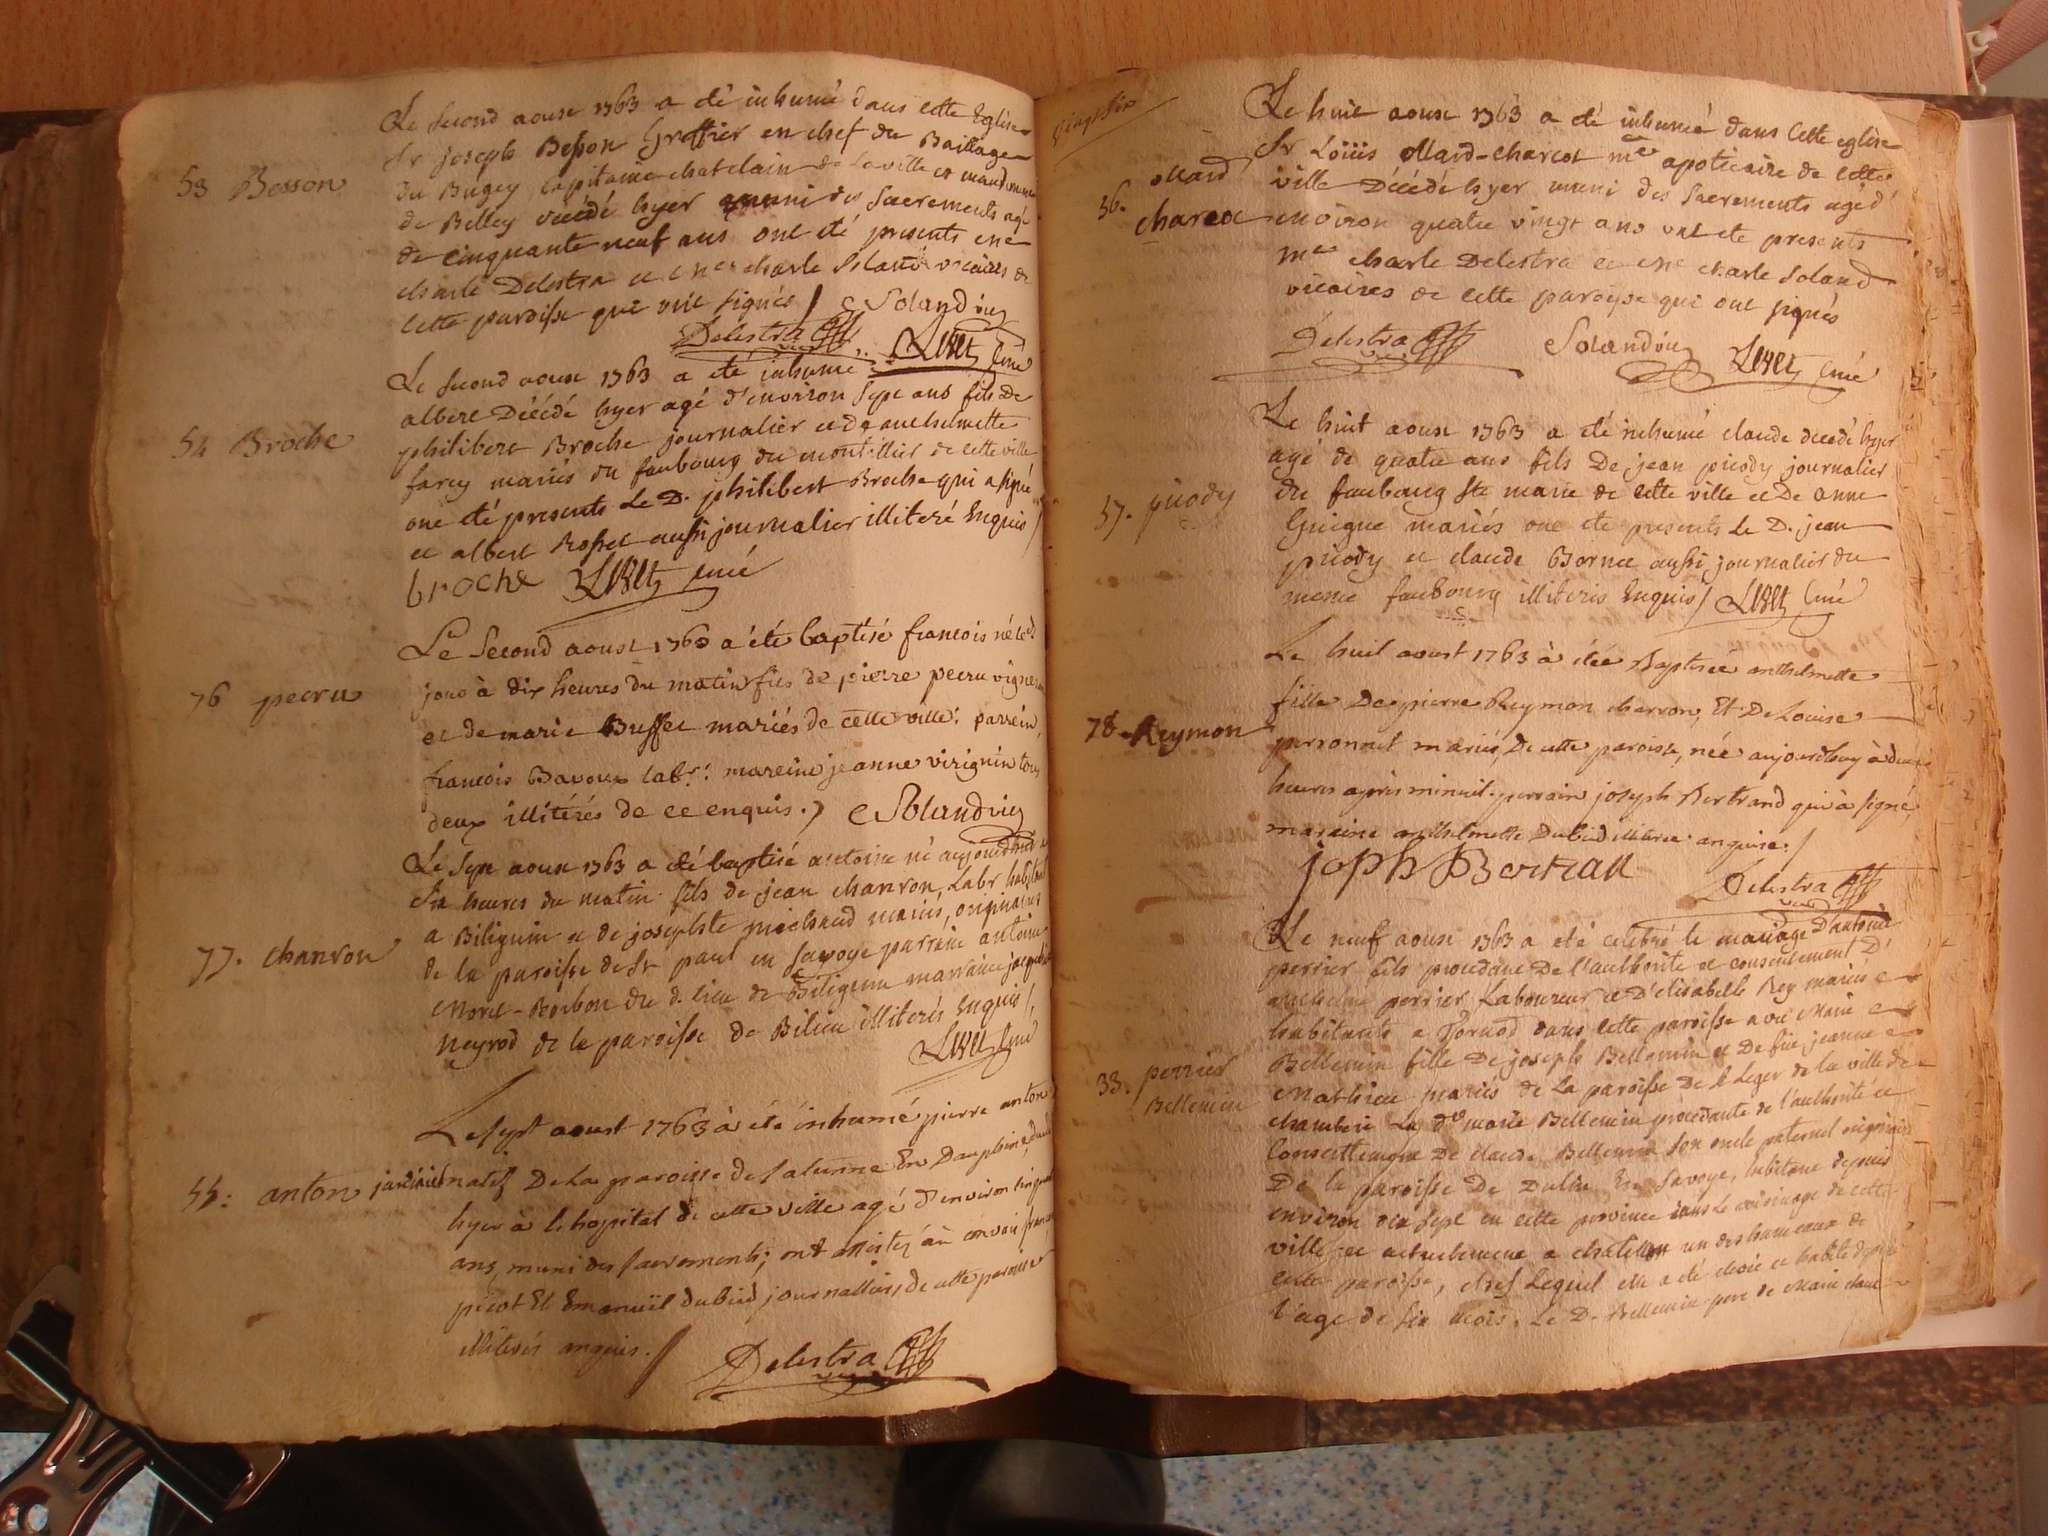 Le second aoust 1763 a été inhumé dans cette Eglise
Sr joseph Besson Greffier en chef du Bailliage
53 Besson
du Bugey capitaine chatelain de la ville et mandement
de Belley décédé hyer muni des Sacrements agé
de cinquante neuf ans ont été presents
charle Delestra et charle Soland vicaires de
cette paroisse qui ont signés / Soland vic
Delestra Livet curé
Le second aoust 1763 a été inhumé
albert Décédé hyer agé d'environ sept ans fils De
54 Broche
philibert Broche journalier et d'anthelmette
farcy mariés du faubourg du montillier de cette ville
ont été presents Le D. philibert Broche qui a signé
et albert Rosset aussi journalier illiteré Enquis /
broche Livet curé
Le Second aoust 1763 a été baptisé francois né led
76 pecru
jour à dix heures du matin fils de pierre pecru vigneron
et de marie Buffet mariés de cette ville: parrein
francois Bavoux labr. mareine jeanne virignin tous
deux illitérés de ce enquis. / Soland vic
Le Sept aoust 1763 a été baptisé antoine né aujourdhui a
six heures du matin fils de jean chanron, Labr habitant
77. chanron
a Biliguin et de josephte michaud mariés, originaires
de la paroisse de St paul en savoye parrein antoine
Moret-Bonbon du d. lieu de Biliguin marraine
Neyrod de la paroisse de Bilieu illiterés Enquis /
Livet curé
Le sept aoust 1763 à été inhumé pierre anton
55: anton jardinier
natif De La paroisse de salenne En Dauphiné,
hyer à lhopital de cette ville agé d'environ
ans, muni des sacrements; ont assistez au convoi
picot Et Emanuël dubied journalliers de cette paroisse
illiterés anquis. /
Delestra
vingt six
Le huit aoust 1763 a été inhumé dans Cette eglise
Sr Loüis ollard-charcot me apoticaire de cette
56. ollard
charcot
ville Décédé hyer muni des Sacrements agé d'
environ quatre vingt ans ont ete presents
mre charle Delestra et charle Soland
vicaires de cette paroisse qui ont signés
Delestra Soland vic Livet curé
Le huit aoust 1763 a été inhumé claude decedé hyer
agé de quatre ans fils De jean picody journalier
57. picody
du faubourg Ste marie de cette ville et De anne
Guigue mariés ont ete presents Le D. jean
picody et claude Bornet aussi journalier du
meme faubourg illiterés Enquis / Livet curé
Le huit aoust 1763 à étée Baptisée anthelmette
fille De pierre Reymon charron, Et De Louise
78. Reymon
personnet mariés, De cette paroisse, née aujourdhuy à
heures après minuit. parrain joseph Bertrand qui à signé,
maraine anthelmette Dubied illiterée anquise. /
joph Bertran
Delestra
Le neuf aoust 1763 a été celebré le mariage D'antoine
perrier fils procedant De l'authorité et consentement D'
anthelme perrier Laboureur et D'elisabelle Rey mariés
habitants a Pornod dans cette paroisse avec Marie
33. perrier
Bellemin
Bellemin fille De joseph Bellemin et De fue jeanne
Mathieu mariés de La paroisse De St Leger de la ville de
chamberi La de marie Bellemin procedante de l'authorité et
Consentement De claude Bellemin son oncle paternel originaire
De la paroisse De Dulin En Savoye, habitant depuis
environ dix sept en cette province dans le voisinage de cette
ville et actuellement a chatillon un des hameaux de
cette paroisse, chez Lequel elle a été elevée et habité depuis
l'age de six mois. Le D. Bellemin pere de Marie